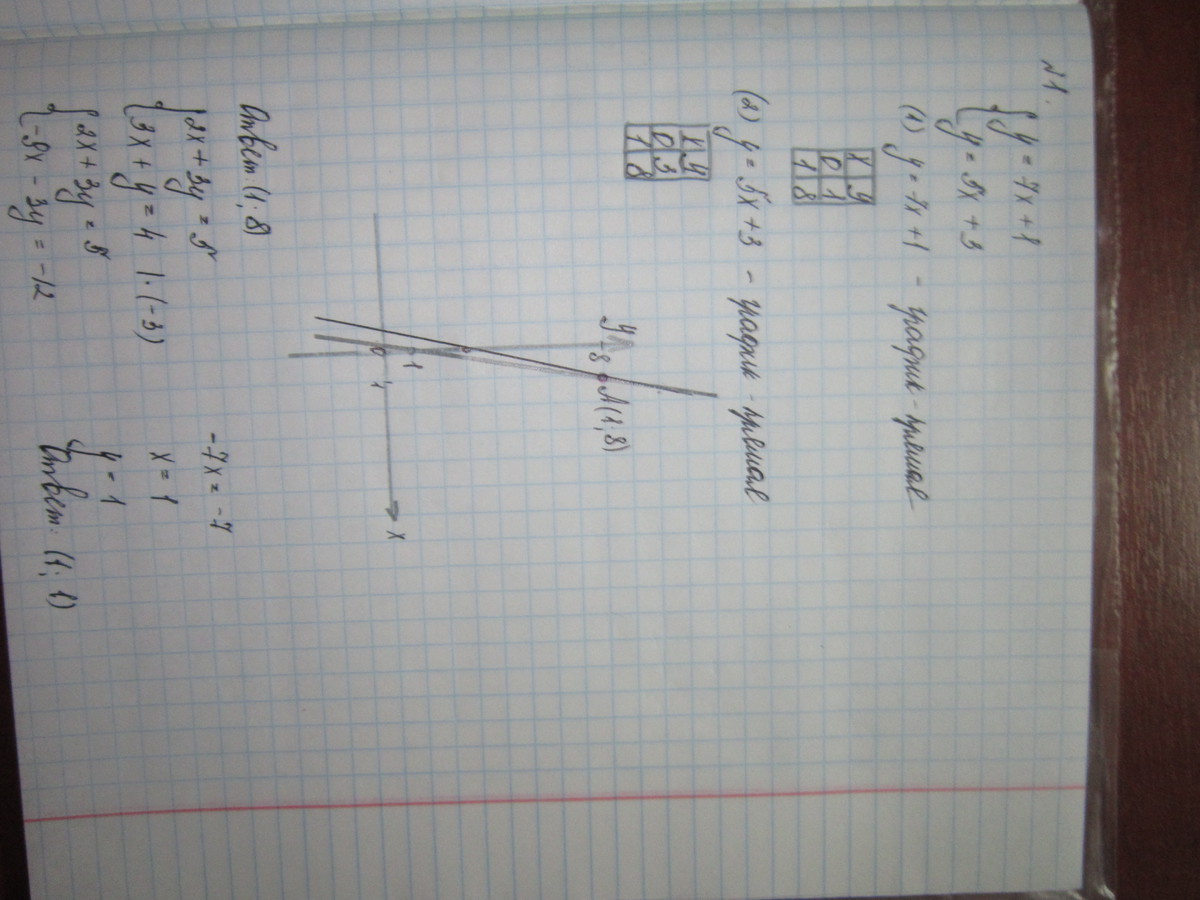 N1.
{ y = 7x + 1
{ y = 5x + 3
(1) y = 7x + 1 - график - прямая
x y
0 1
1 8
(2) y = 5x + 3 - график - прямая
x y
0 3
1 8
y
8 A(1;8)
1
0 1 x
Ответ: (1; 8)
{ 2x + 3y = 5
{ 3x + y = 4 | · (-3)
{ 2x + 3y = 5
{ -9x - 3y = -12
-7x = -7
x = 1
y = 1
Ответ: (1; 1)